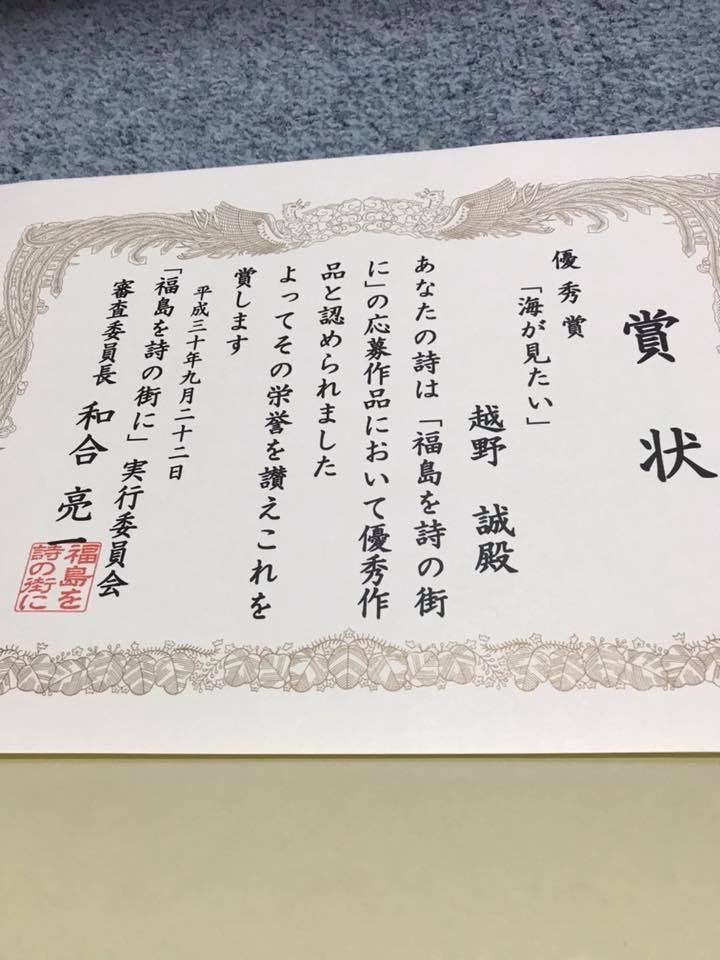 賞状
優秀賞
「海が見たい」
越野 誠殿
あなたの詩は「福島を詩の街
に」の応募作品において優秀作
品と認められました
よってその栄誉を讃えこれを
賞します
平成三十年九月二十二日
「福島を詩の街に」実行委員会
審査委員長 和合 亮一
福島を
詩の街に